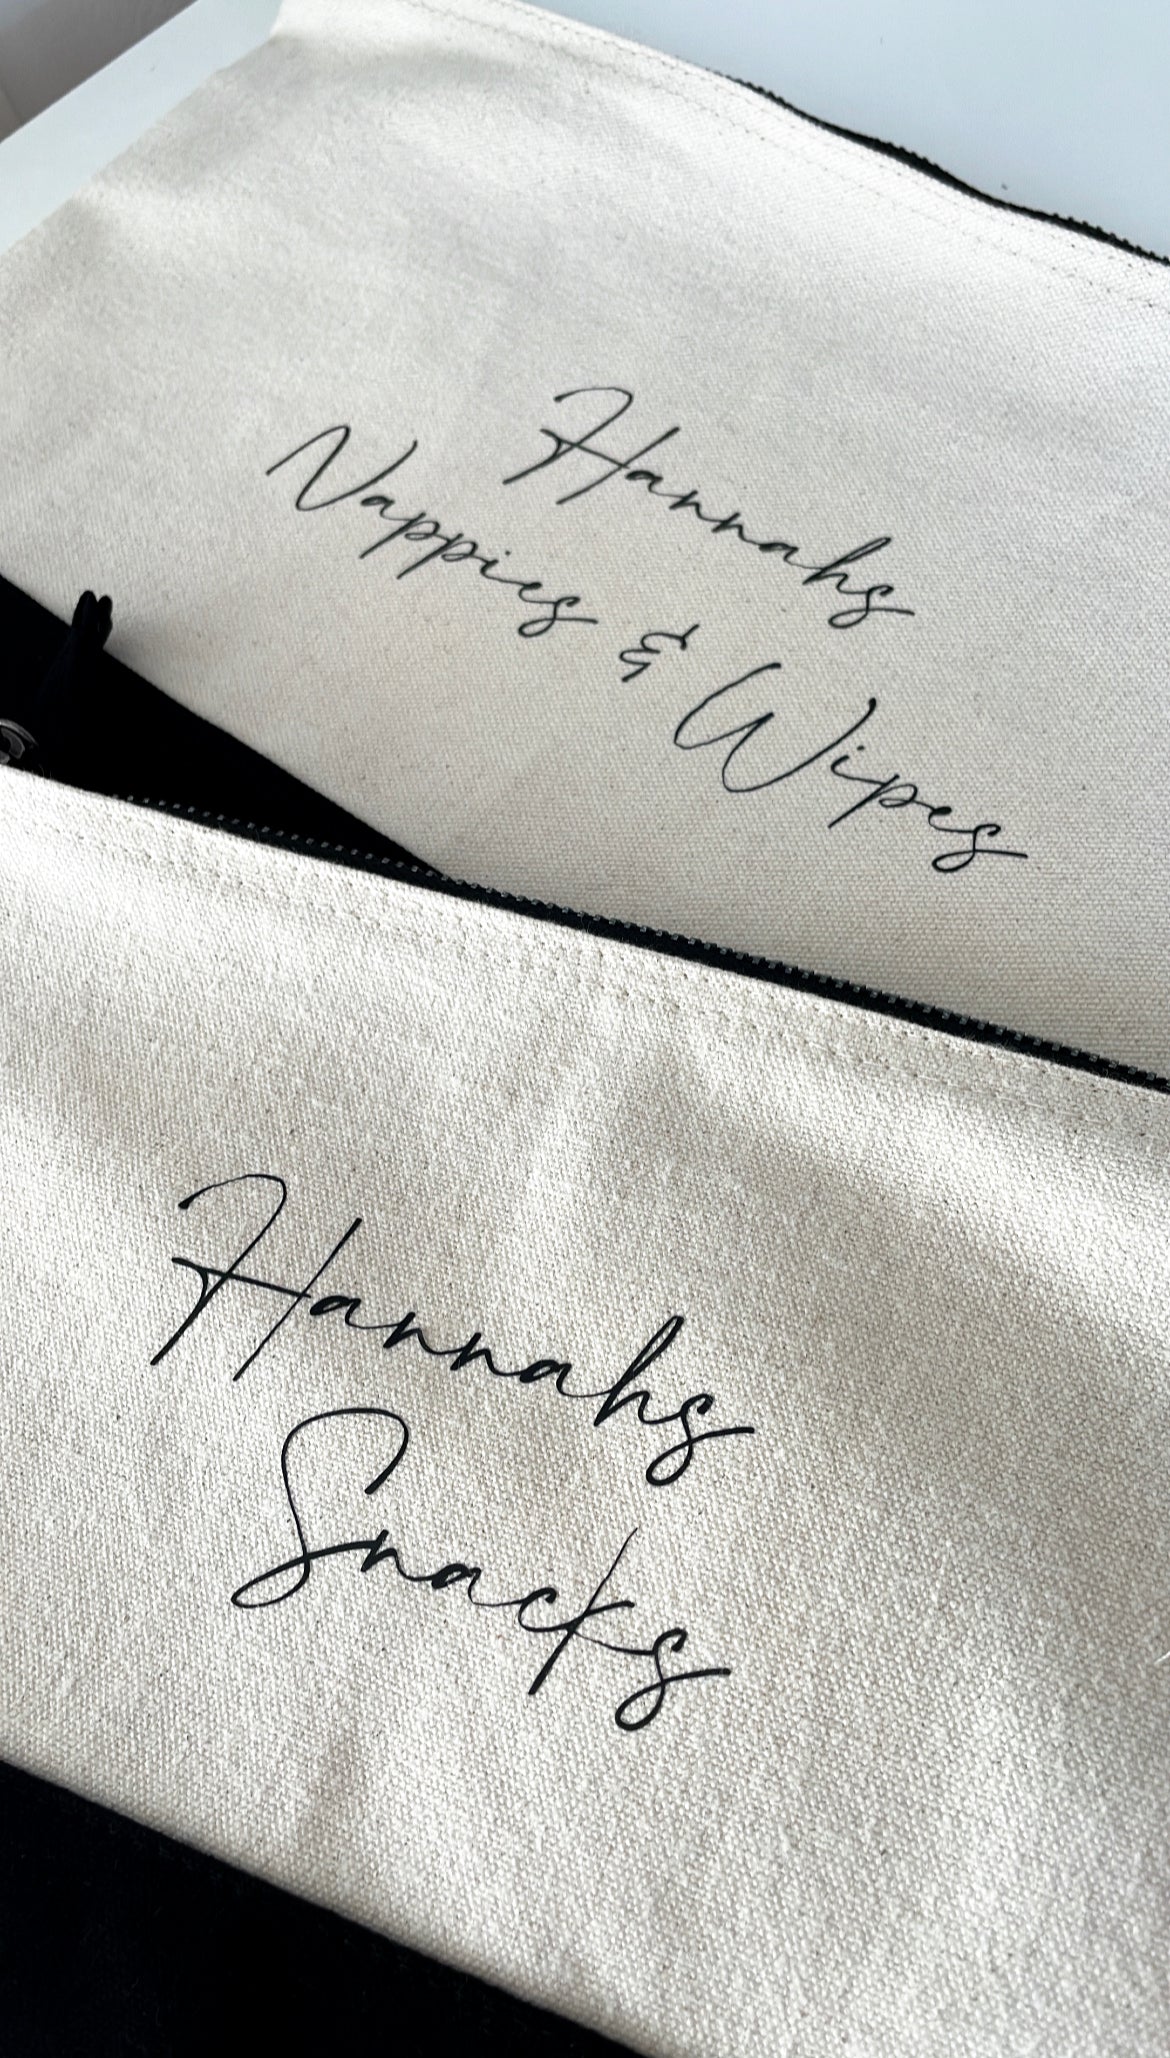 Hannahs
Nappies & Wipes
Hannahs
Snacks